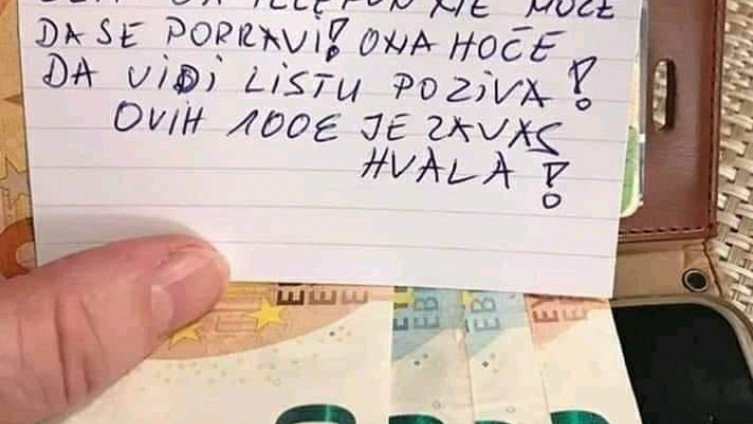 DA TELEFON NE MOŽE
DA SE POPRAVI! ONA HOČE
DA VIDI LISTU POZIVA!
OVIH 100€ JE ZA VAS
HVALA!